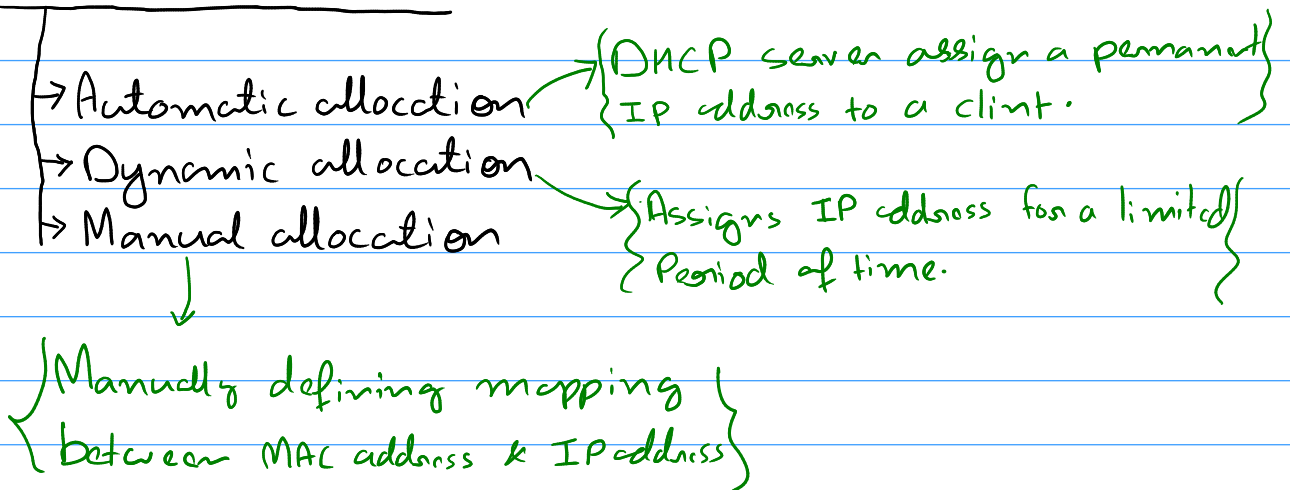 Automatic allocation
{DHCP server assign a pemanant
IP address to a clint.}
Dynamic allocation
{Assigns IP address for a limited
Period of time.}
Manual allocation
{Manually defining mapping
between MAC address & IP address}